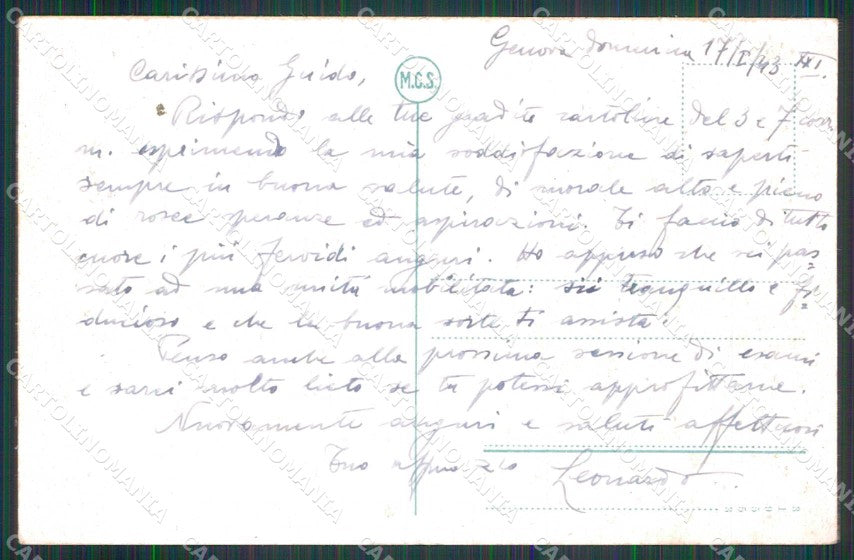 Genova domenica 17/I/43 XXI.
Carissimo Guido,
M.G.S.
Rispondo alle tue gradite cartoline del 3 e 7 corr.
m. esprimendo la mia soddisfazione di saperti
sempre in buona salute, di morale alto e pieno
di rosee speranze ed aspirazioni. Ti faccio di tutto
cuore i più fervidi auguri. Ho appreso che sei pas=
sato ad una unità mobilitata: sii tranquillo e fi=
ducioso e che la buona sorte ti assista.
Penso anche alla prossima sessione di esami
e sarei molto lieto se tu potessi approfittarne.
Nuovamente auguri e saluti affettuosi
Tuo
Leonardo
CARTOLINOMANIA